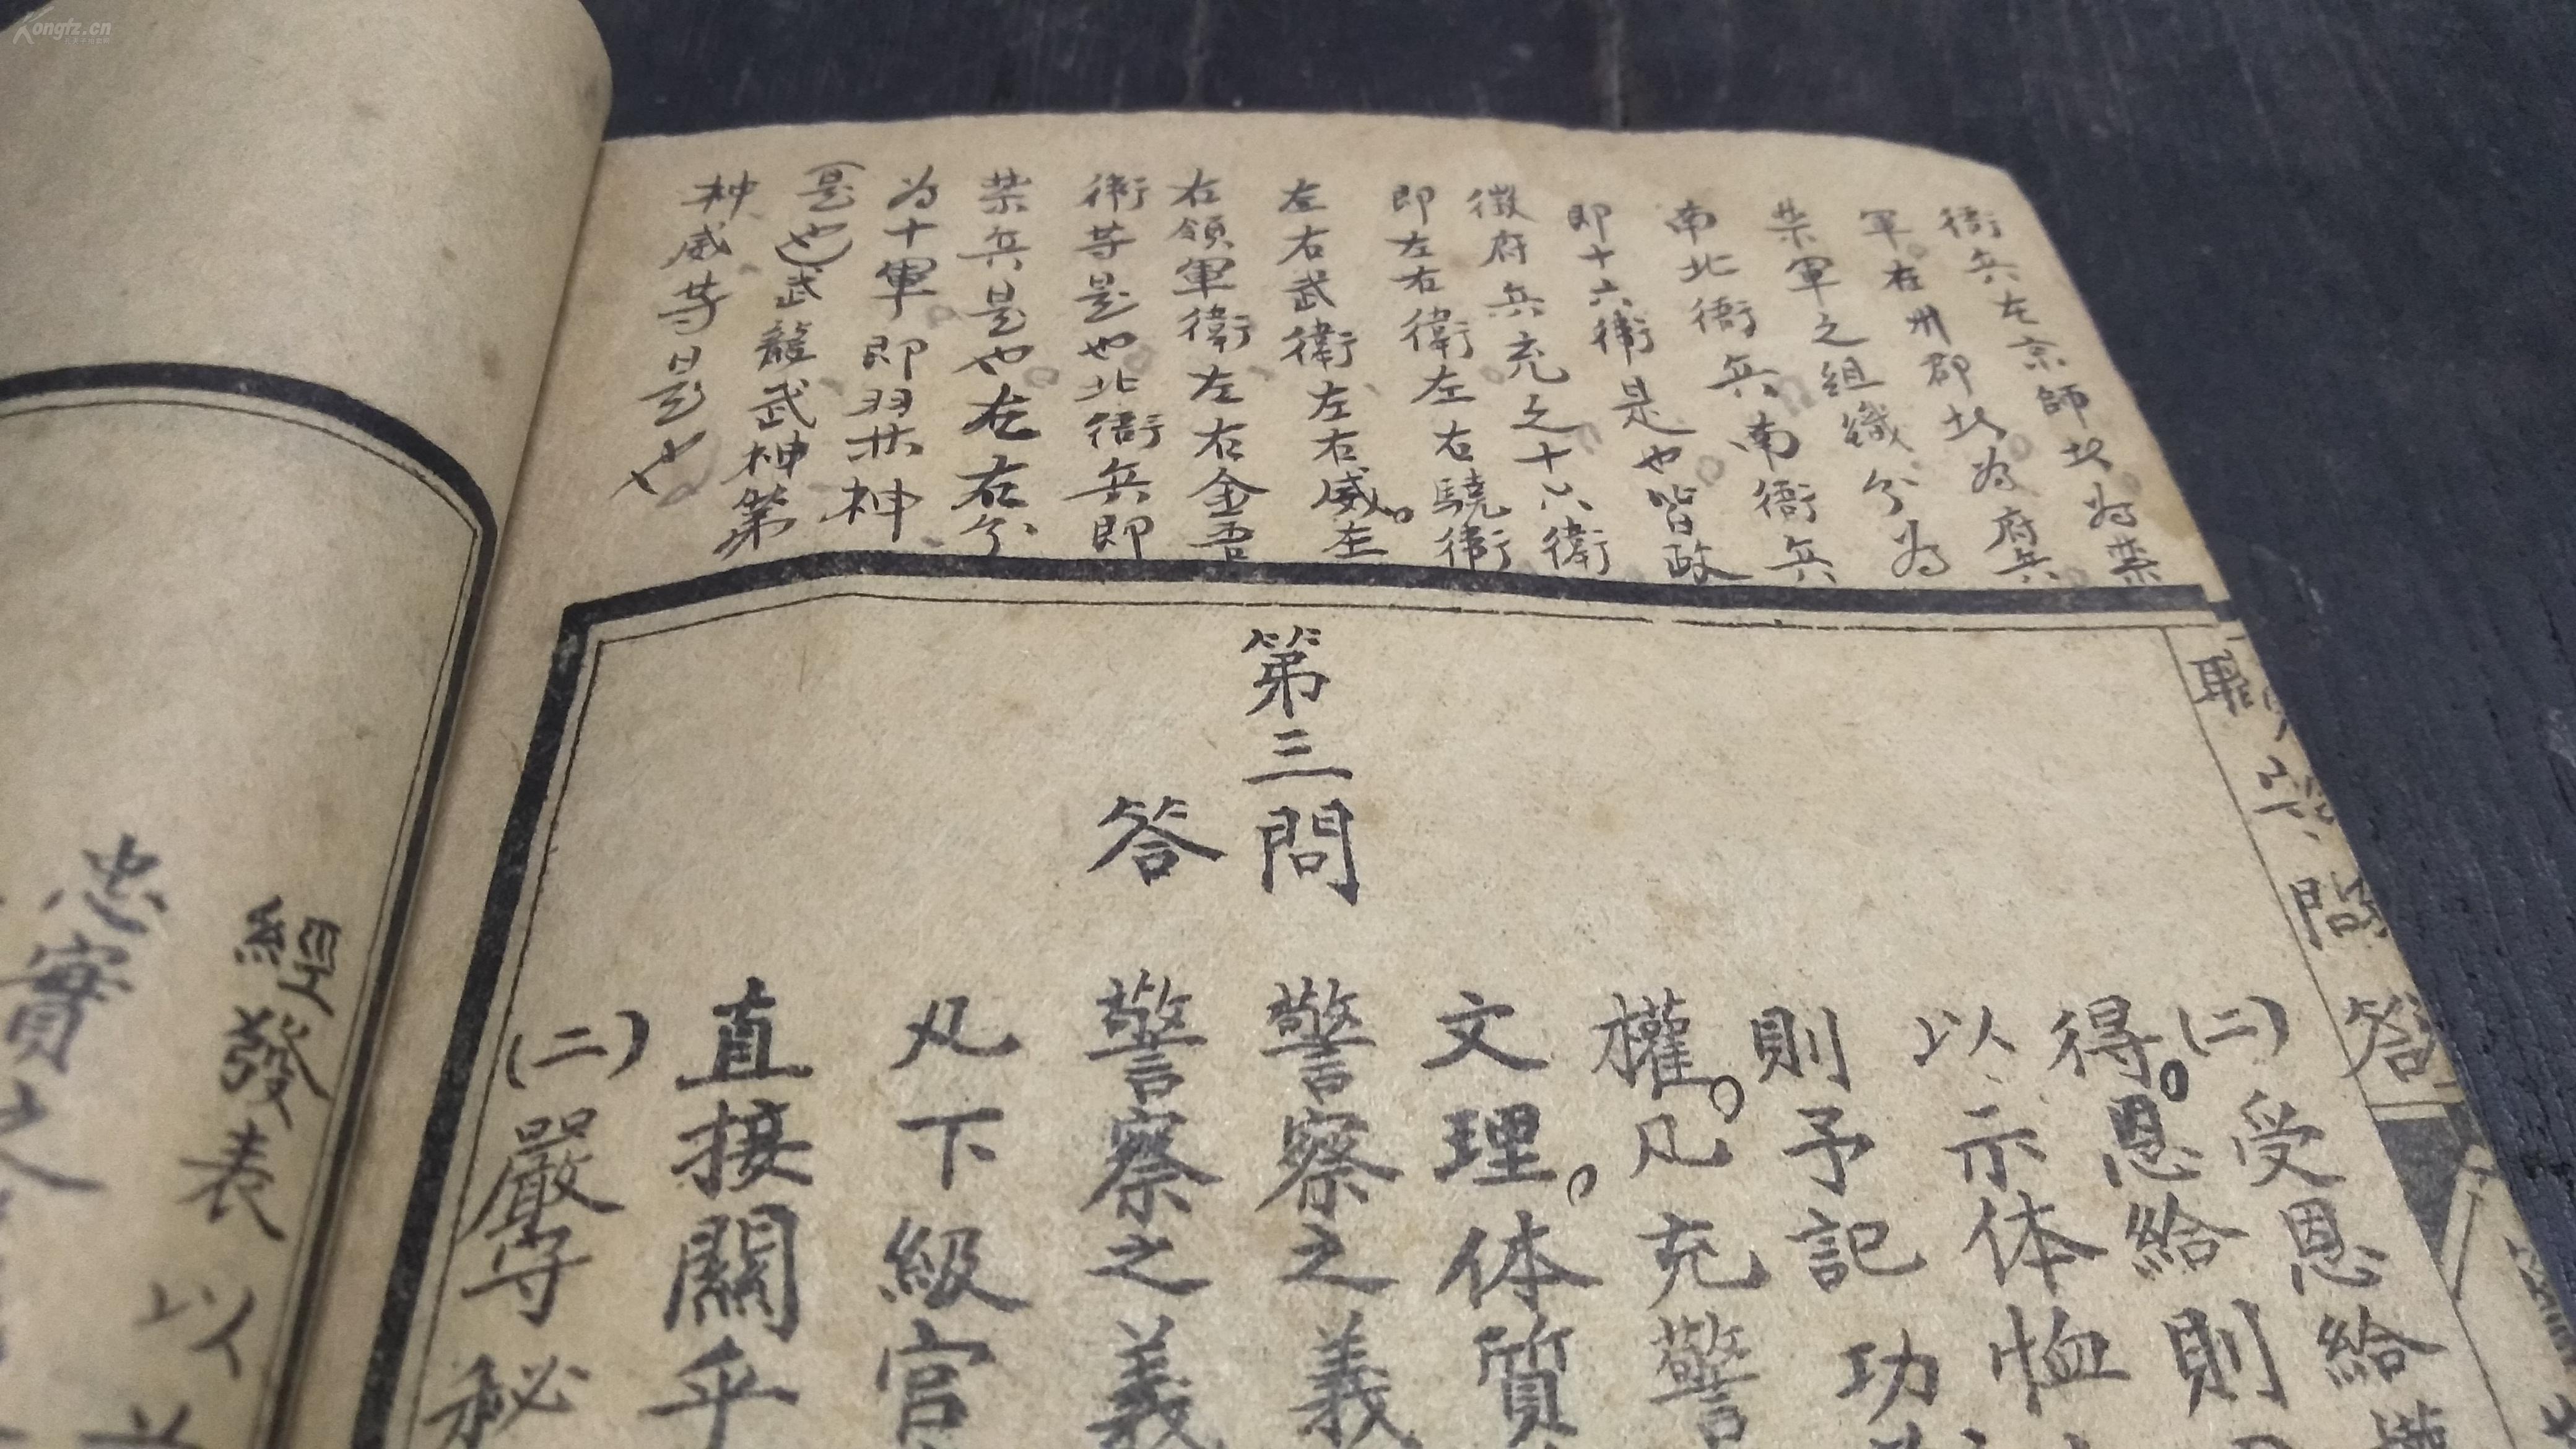 衛兵在京師以為禁
軍在州郡以為府兵
禁軍之組織分為
南北衙兵南衙兵
即十六衛是也皆政
徵府兵充之十六衛
即左右衛左右驍衛
左右武衛左右威。左
右領軍衛左右金吾
衛等是也北衙兵即
禁兵是也左右分
為十軍即羽林神
是也武龍武神策
神威等是也
職
問
答
(二)受恩給權
得。恩給則
以示体恤
則予記功
權。凡充警
文理。体質
第三問 警察之義
答 警察之義
凡下級官
直接關乎
(二)嚴守秘
經發表以
忠實之
Kongfz.cn